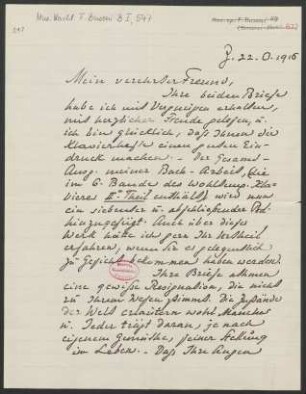 Mus. Nachl. F. Busoni B I, 547
Z. 22. O. 1916
Mein verehrter Freund,
Ihre beiden Briefe
habe ich mit Vergnügen erhalten,
mit herzlicher Freude gelesen, u.
ich bin glücklich, daß Ihnen die
Klavierhefte einen guten Ein-
druck machen. – Der Gesamt-
Ausg. meiner Bach-Arbeit, (die
im 6. Bande des Wohltemp. Kla-
vieres II. Theil enthält) wird nun
ein siebenter u. abschließender
hinzugefügt. Auch über dieses
Werk hätte ich gern Ihr Urtheil
erfahren, wenn Sie es gelegentlich
zu Gesicht bekommen haben werden.
Ihre Briefe athmen
eine gewisse Resignation, die nicht
zu Ihrem Wesen stimmt. Die Zustände
der Welt erläutern wohl Manches
u. Jeder trägt daran, je nach
eigenem Gemüthe, seiner Stellung
im Leben. – Daß Ihre Augen